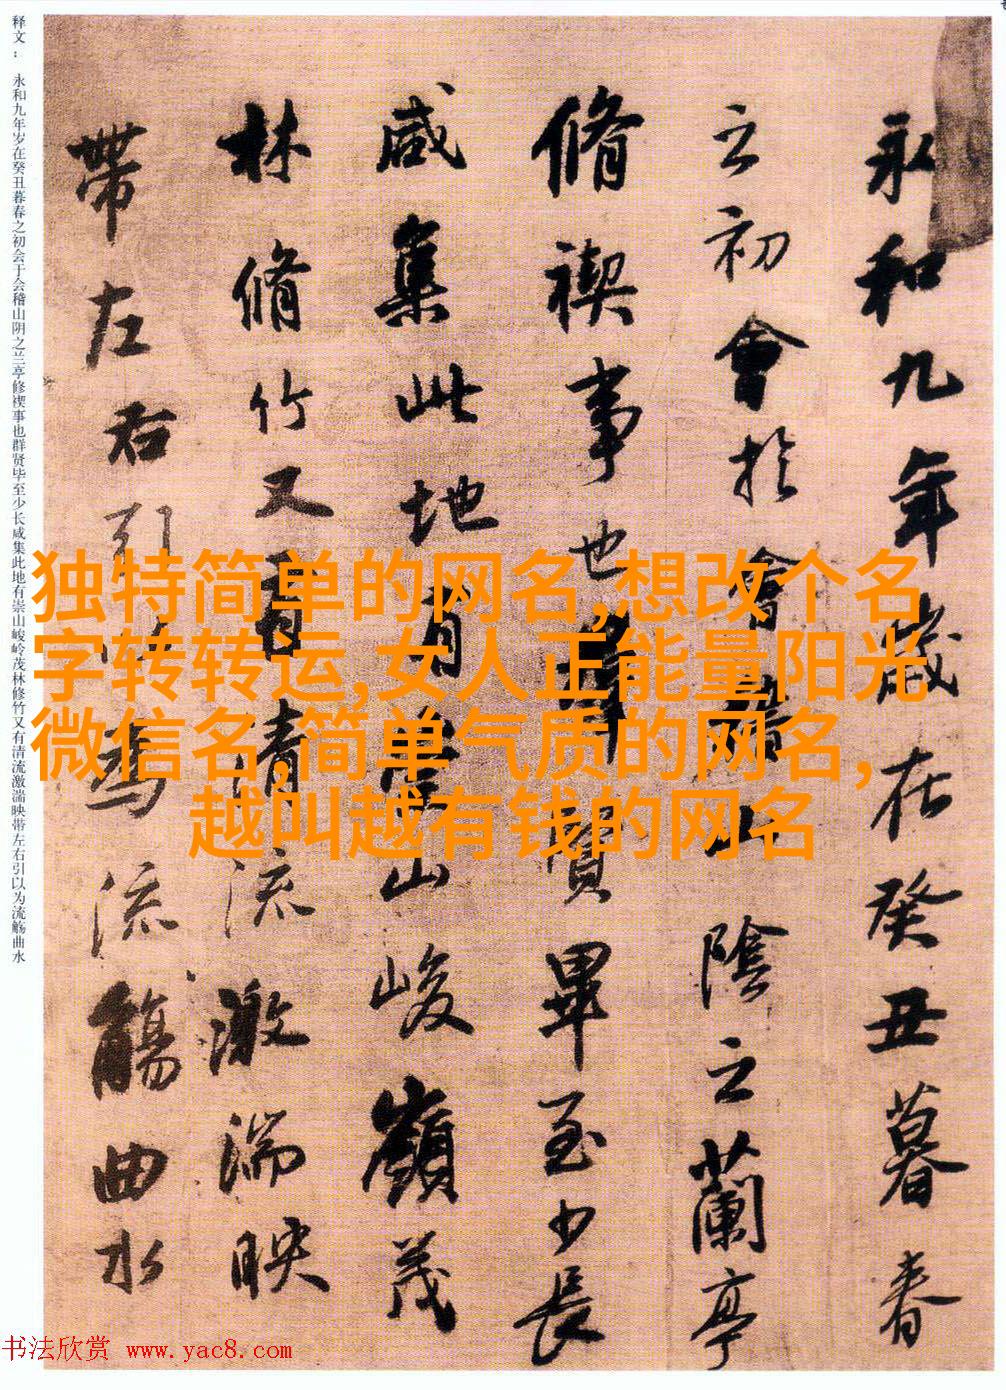 永和九年歲在癸丑暮春
之初會於會稽山陰之蘭亭
脩禊事也羣賢畢至少長
咸集此地有崇山峻嶺茂
林脩竹又有清流激湍映
帶左右引以為流觴曲水
释文：永和九年岁在癸丑暮春之初会于会稽山阴之兰亭修禊事也群贤毕至少长咸集此地有崇山峻岭茂林修竹又有清流激湍映带左右引以为流觞曲水
独特简单的网名,想改个名
字转转运,女人正能量阳光
微信名,简单气质的网名,
越叫越有钱的网名
书法欣赏 www.yac8.com